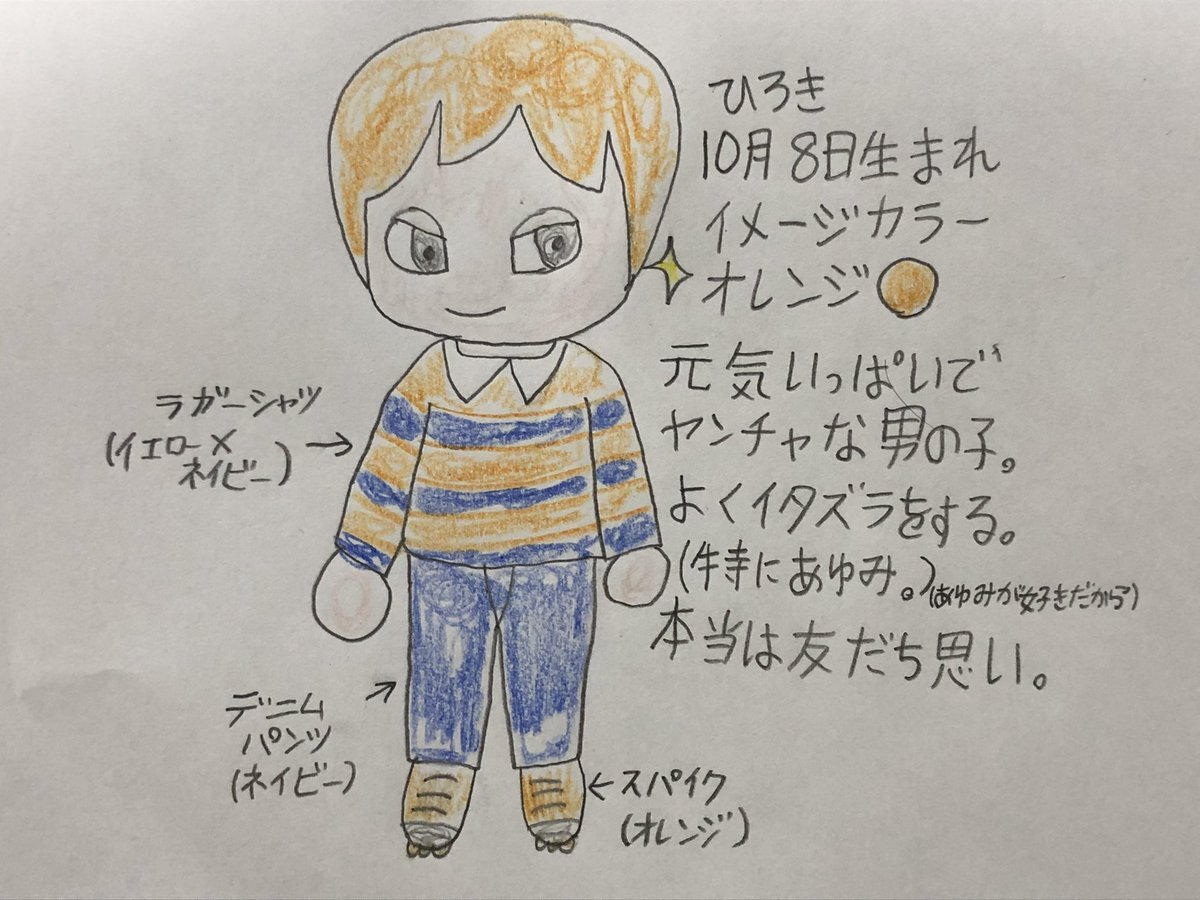 ひろき
10月8日生まれ
イメージカラー
オレンジ
元気いっぱいで
ヤンチャな男の子。
よくイタズラをする。
(特にあゆみ。)(あゆみが好きだから)
本当は友だち思い。
ラガーシャツ
(イエロー×
ネイビー)
デニム
パンツ
(ネイビー)
スパイク
(オレンジ)